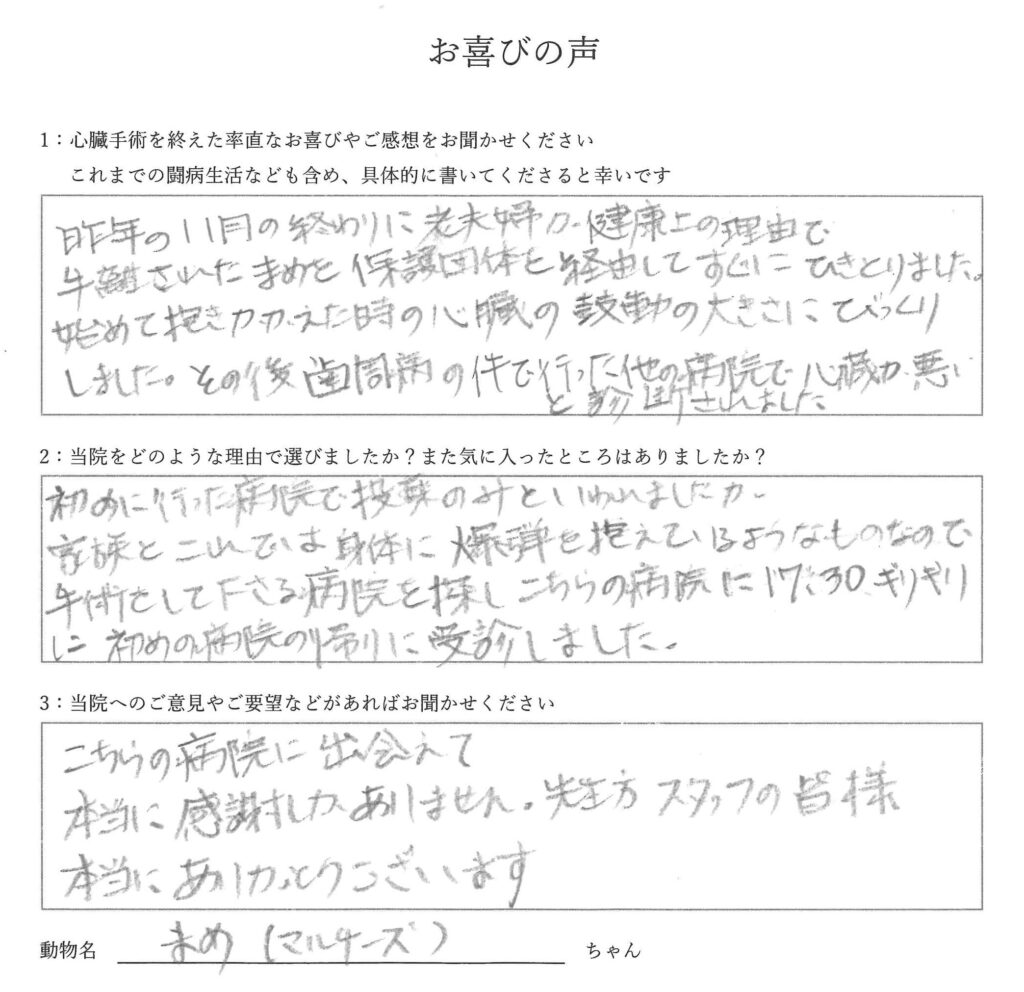 お喜びの声
1：心臓手術を終えた率直なお喜びやご感想をお聞かせください
これまでの闘病生活なども含め、具体的に書いてくださると幸いです
昨年の11月の終わりに老夫婦が健康上の理由で
手離されたまめを保護団体を経由してすぐにひきとりました。
始めて抱きかかえた時の心臓の鼓動の大きさにびっくり
しました。その後歯周病の件で行った他の病院で心臓が悪い
と診断されました
2：当院をどのような理由で選びましたか？また気に入ったところはありましたか？
初めに行った病院で投薬のみといわれましたが
家族とこれでは身体に爆弾を抱えているようなものなので
手術をして下さる病院を探しこちらの病院に17:30ギリギリ
に初めの病院の帰りに受診しました。
3：当院へのご意見やご要望などがあればお聞かせください
こちらの病院に出会えて
本当に感謝しかありません。先生方スタッフの皆様
本当にありがとうございます
動物名 まめ(マルチーズ) ちゃん